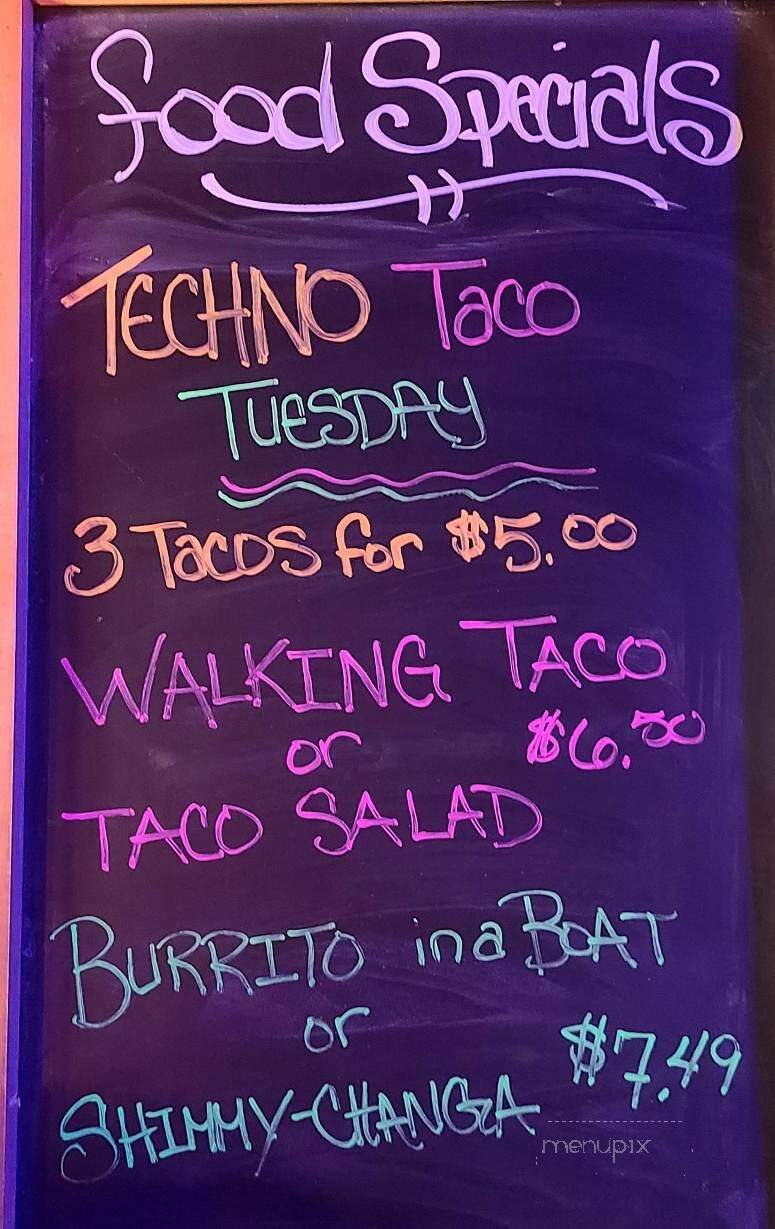 Food Specials
TECHNO Taco
TUESDAY
3 Tacos for $5.00
WALKING TACO
or $6.50
TACO SALAD
BURRITO in a BOAT
or
$7.49
SHIMMY-CHANGA
menupix